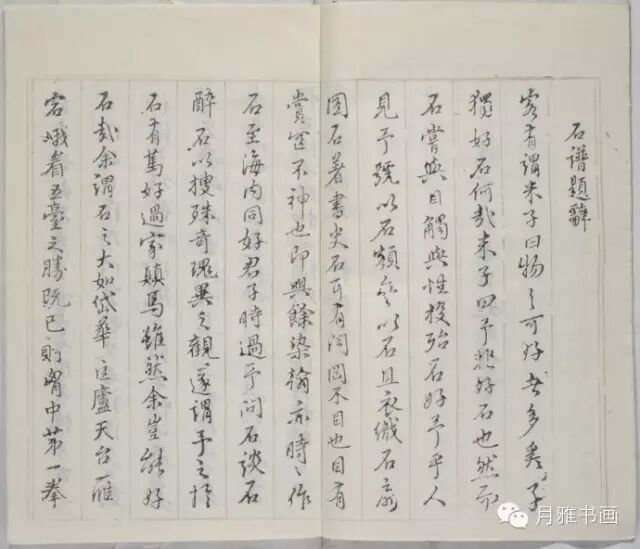 石譜題辭
客有謂米子曰物之可好者多矣子
獨好石何哉米子曰予非好石也然
石嘗與目觸與性投殆石好予乎人
見予號以石類多以石且衣織石
圖石著書史石可有不目也目有
賞不神也即興餘染翰亦時〻作
石至海内同好君子時過予問石談石
醉石以搜殊奇瑰異之觀遂謂予之於
石有篤好過家顛焉雖然余豈能好
石哉余謂石之大如岱華匡廬天台雁
宕峨眉五臺之勝既已則胷中第一拳
月雅书画